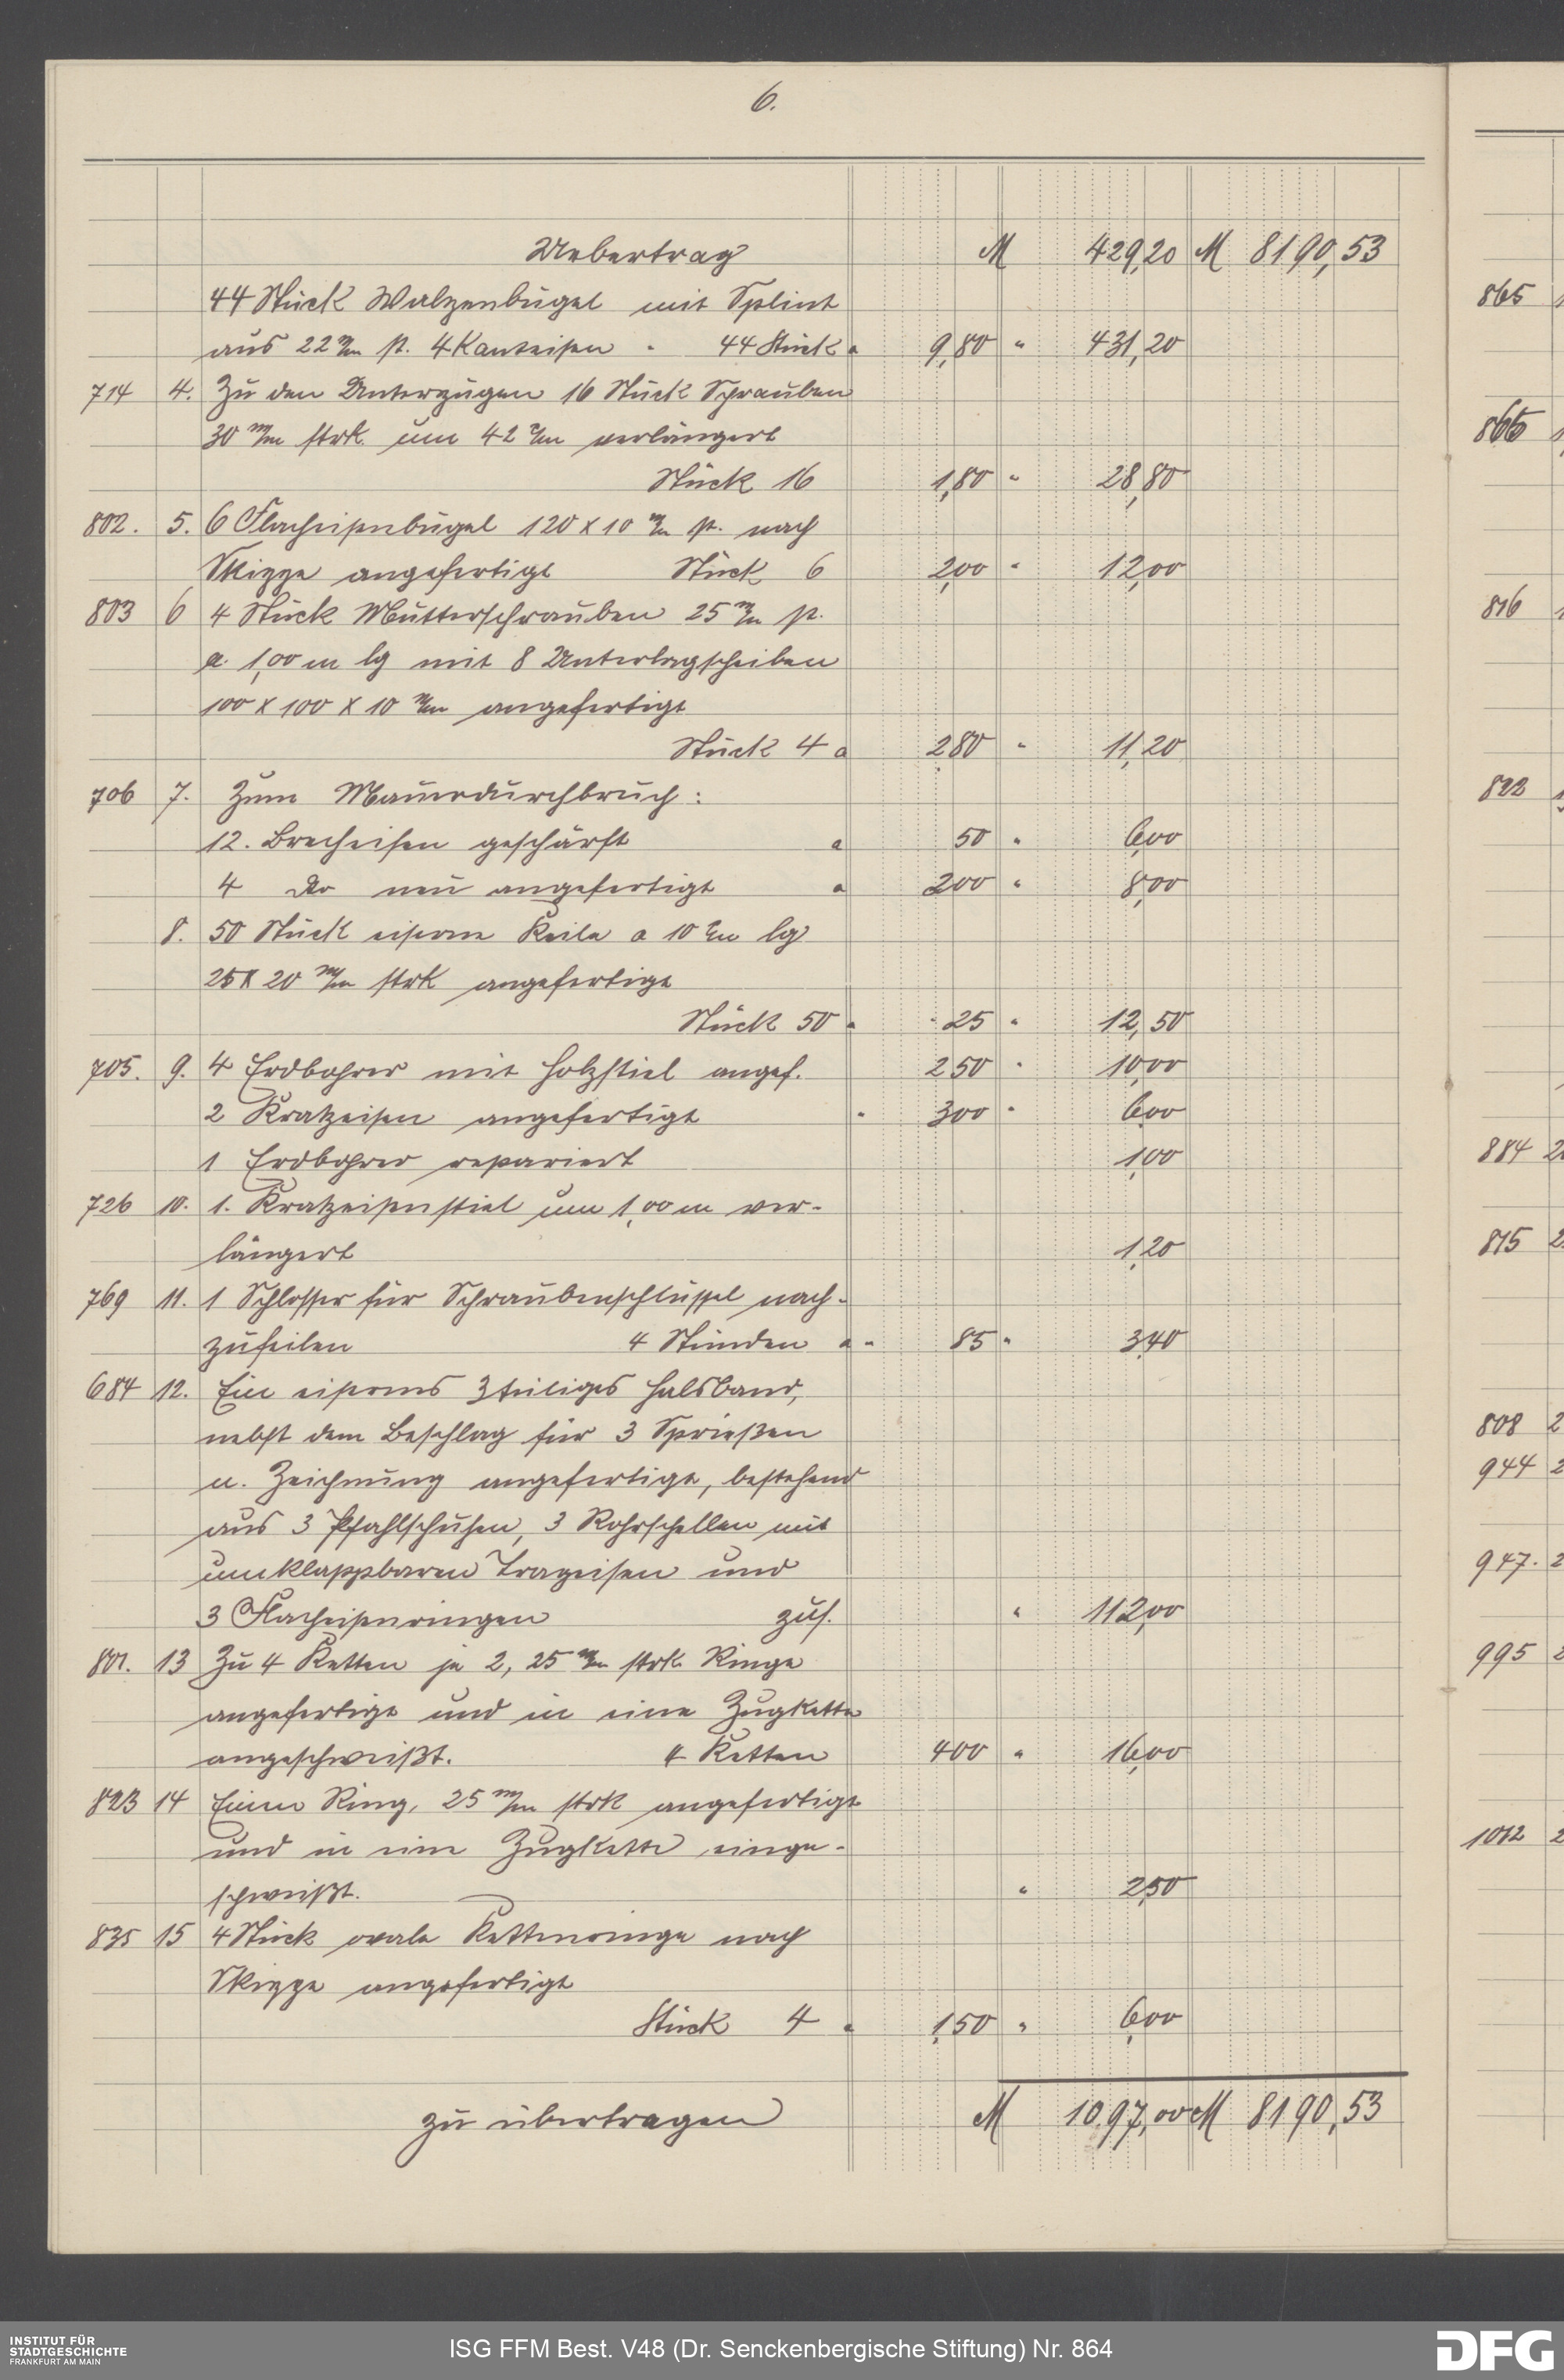 6.
Uebertrag M 429,20 M 8190,53
44 Stück Walzenbügel mit Splint
aus 22 m/m st. 4Kanteisen " 44 Stück a 9,80 " 431,20
714 4. Zu den Unterzügen 16 Stück Schrauben
30 m/m strk. um 42 c/m verlängert
Stück 16 1,80 " 28,80
802. 5. 6 Flacheisenbügel 120 x 10 m/m st. nach
Skizze angefertigt Stück 6 2,00 " 12,00
803 6 4 Stück Mutterschrauben 25 m/m st.
a 1,00 m lg mit 8 Unterlagscheiben
100 x 100 x 10 m/m angefertigt
Stück 4 a 2,80 " 11,20
706 7. Zum Mauerdurchbruch :
12. Brecheisen geschärft a 50 " 6,00
4 do neu angefertigt a 2,00 " 8,00
8. 50 Stück eiserne Keile a 10 c/m lg
25 x 20 m/m strk angefertigt
Stück 50 " 25 " 12,50
705. 9. 4 Erdbohrer mit Holzstiel angef. 2,50 " 10,00
2 Kratzeisen angefertigt " 3,00 " 6,00
1 Erdbohrer repariert 1,00
726 10. 1. Kratzeisenstiel um 1,00 m ver-
längert 1,20
769 11. 1 Schlosser für Schraubenschlüssel nach-
zufeilen 4 Stunden a " 85 " 3,40
684 12. Ein eisernes 3teiliges Halsband,
nebst dem Beschlag für 3 Sprießen
n. Zeichnung angefertigt, bestehend
aus 3 Pfahlschuhen, 3 Rohrschellen mit
umklappbaren Trageisen und
3 Flacheisenringen zus. " 112,00
801. 13 Zu 4 Ketten je 2, 25 m/m strk. Ringe
angefertigt und in eine Zugkette
angeschweißt. 4 Ketten 4,00 " 16,00
823 14 Einen Ring, 25 m/m strk angefertigt
und in eine Zugkette einge-
schweißt. " 2,50
835 15 4 Stück ovale Kettenringe nach
Skizze angefertigt
Stück 4 " 1,50 " 6,00
zu übertragen M 1097,00 M 8190,53
865
866
816
822
884
815
808
944
947.
995
1012
INSTITUT FÜR
STADTGESCHICHTE
FRANKFURT AM MAIN
ISG FFM Best. V48 (Dr. Senckenbergische Stiftung) Nr. 864
DFG